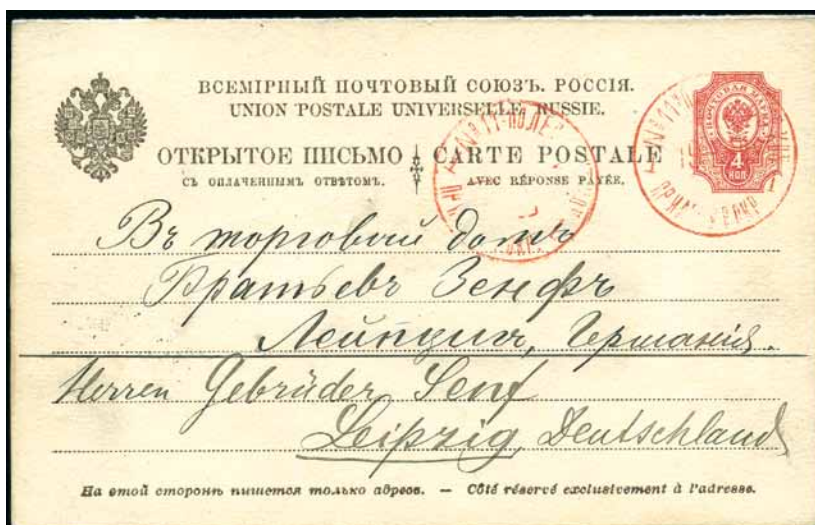 ВСЕМІРНЫЙ ПОЧТОВЫЙ СОЮЗЪ. РОССІЯ.
UNION POSTALE UNIVERSELLE. RUSSIE.
ОТКРЫТОЕ ПИСЬМО
СЪ ОПЛАЧЕННЫМЪ ОТВѢТОМЪ.
CARTE POSTALE
AVEC RÉPONSE PAYÉE.
ПОЧТОВАЯ МАРКА
4
КОП
Въ торговый домъ
Братьевъ Зенфъ
Лейпциг, Германія.
Herren Gebrüder Senf
Leipzig, Deutschland
На этой сторонѣ пишется только адресъ. — Côté réservé exclusivement à l'adresse.